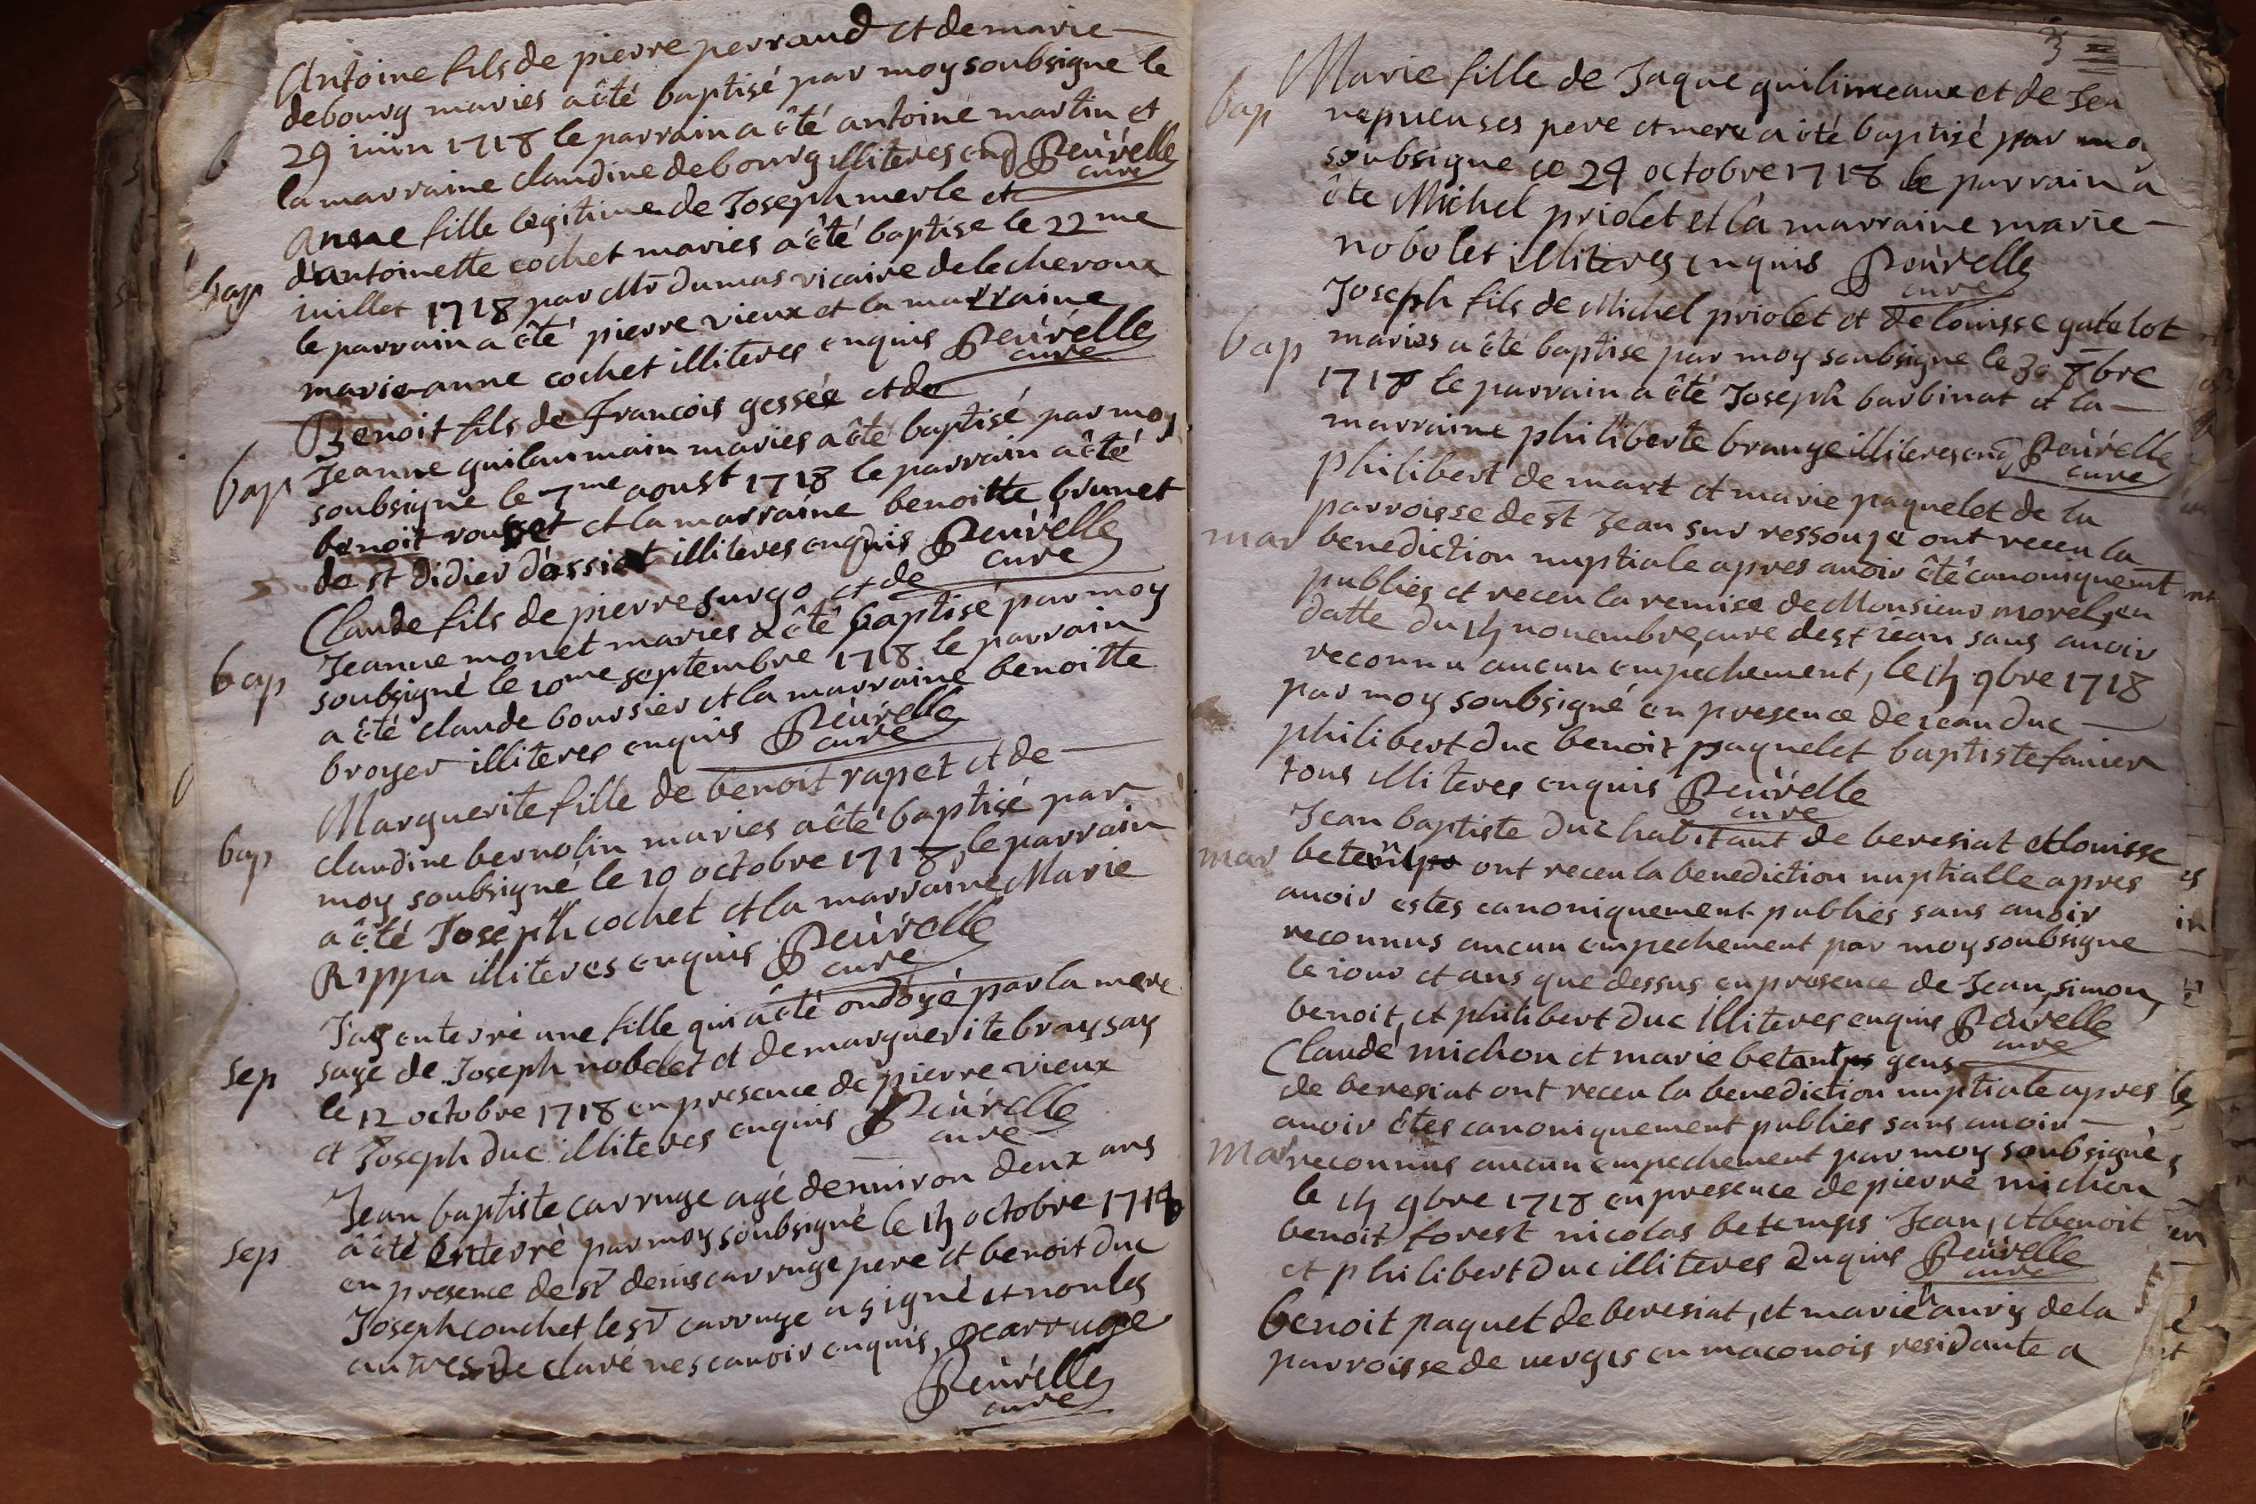 Antoine fils de pierre perraud et de marie
debourg maries a êté baptisé par moy soubsigne le
29 iuin 1718 le parrain a êté antoine martin et
la marraine claudine debourg illiteres enq Peúrelle
cure
bap
Anne fille legitime de Joseph merle et
d'antoinette cochet maries a êté baptise le 22me
iuillet 1718 par Mr dumas vicaire de lecheroux
le parrain a êté pierre vieux et la marraine
marie anne cochet illiteres enquis Peúrelle
cure
bap
Benoit fils de francois gessée et de
Jeanne guilaumain maries a êté baptisé par moy
soubsigne le 7me aoust 1718 le parrain a êté
benoit rousset et la marraine benoitte brunet
de st didier d'assiat illiteres enquis Peúrelle
cure
bap
Claude fils de pierre surgo et de
Jeanne monet maries a êté baptisé par moy
soubsigné le 10me septembre 1718 le parrain
a êté claude boursier et la marraine benoitte
broyer illiteres enquis Peúrelle
cure
bap
Marguerite fille de benoit rapet et de
claudine bernolin maries a êté baptisé par
moy soubsigné le 10 octobre 1718, le parrain
a êté Joseph cochet et la marraine Marie
Rippa illiteres enquis Peúrelle
cure
sep
J'ay enterré une fille qui a êté ondoyé par la mere
sage de Joseph nobelet et de marguerite braysay
le 12 octobre 1718 en presence de pierre vieux
et Joseph duc illiteres enquis Peúrelle
cure
sep
Jean baptiste carruge agé d'enuiron deux ans
a êté enterré par moy soubsigné le 14 octobre 1718
en presence de sr denis carruge pere et benoit duc
Joseph couchet le sr carruge a signé et non les
autres de claré ne scauoir enquis, Dcarruge
Peúrelle
cure
3
bap
Marie fille de Jaque guilimeaux et de Jea
repucuses pere et mere a êté baptisé par mo
soubsigne ce 24 octobre 1718 le parrain a
ête Michel priolet et la marraine marie
nobolet illiteres enquis Peúrelle
cure
bap
Joseph fils de Michel priolet et de louisse gatelot
maries a êté baptisé par moy soubsigne le 30 8bre
1718 le parrain a êté Joseph barbinat et la
marraine philiberte brange illiteres enq Peúrelle
cure
mar
philibert de mart et marie paquelet de la
parroisse de st Jean sur ressouze ont receu la
benediction nuptiale apres auoir êté canoniquemt
publiés et receu la remise de Monsieur morel, en
datte du 14 nouembre, cure de st iean sans auoir
reconnu aucun empechement, le 14 9bre 1718
par moy soubsigné en presence de iean duc
philibert duc benoit paquelet baptiste fauier
tous illiteres enquis Peúrelle
cure
mar
Jean baptiste duc habitant de beresiat et louisse
betemps ont receu la benediction nuptialle apres
auoir estes canoniquement publiés sans auoir
reconnus aucun empechement par moy soubsigne
le iour et ans que dessus en presence de Jean, simon,
benoit, et philibert duc illiteres enquis Peúrelle
cure
mar
Claude michon et marie betamps gens
de beresiat ont receu la benediction nuptiale apres
auoir êtes canoniquement publiés sans auoir
reconnus aucun empechement par moy soubsigné
le 14 9bre 1718 en presence de pierre michon
benoit forest nicolas betemps Jean, et benoit
et philibert duc illiteres enquis Peúrelle
cure
benoit paquet de beresiat, et marie hanriy de la
parroisse de uerges en maconois residante a